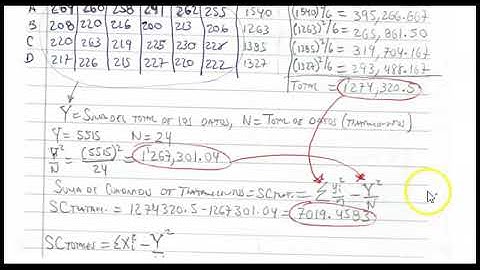 A 264 260 258 241 262 255 1540
B 208 220 216 200 213 206 1263
C 220 263 219 225 230 228 1385
D 217 226 215 227 220 222 1327
(1540)²/6 = 395,266.667
(1263)²/6 = 265,861.50
(1385)²/6 = 319,704.167
(1327)²/6 = 293,488.167
TOTAL = 1'274,320.5
Y = SUMA DEL TOTAL DE LOS DATOS, N = TOTAL DE DATOS (TRATAMIENTOS)
Y = 5515 N = 24
Y²/N = (5515)²/24 = 1'267,301.04
SUMA DE CUADRADOS DE TRATAMIENTOS = SCTRAT. = Σ yi²/n - Y²/N
SCTRATAM. = 1274320.5 - 1267301.04 = 7019.4583
SCTOTALES = ΣXi² - Y²